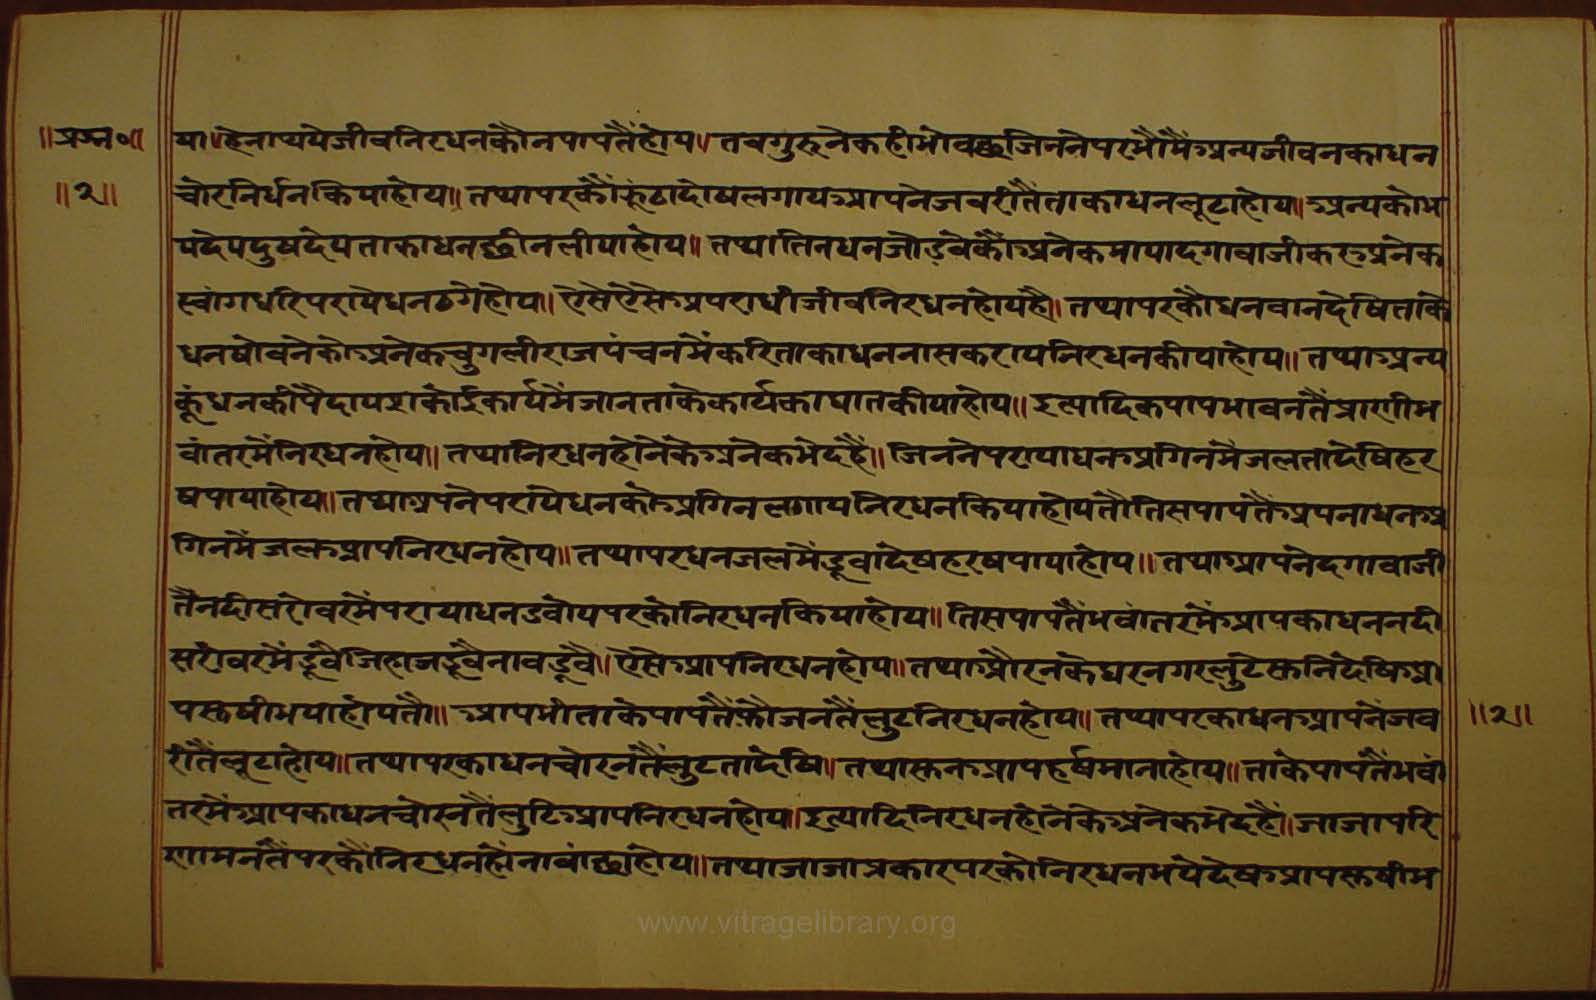 ॥प्रश्न०॥ या॥हेनाथयेजीवनिरधनकौनपापतैंहोय॥तबगुरुनेकहीभोवछजिननेपरभौमैंअन्यजीवनकाधन
॥२॥ चोरनिर्धनकियाहोय॥तथापरकौंझूंठादोषलगायआपनेजबरीतैंताकाधनलूटाहोय॥अन्यकोभ
यदेयदुषदेयताकाधनछीनलीयाहोय॥तथातिनधनजोड़वेकौंअनेकमायादगाबाजीकरअनेक
स्वांगधरिपरायेधनठगेहोय॥ऐसेऐसेअपराधीजीवनिरधनहोयहै॥तथापरकौधनवानदेषिताके
धनषोवनेकोअनेकचुगलीराजपंचनमैंकरिताकाधननासकरायनिरधनकीयाहोय॥तथाअन्य
कूंधनकीपैदायशकोईकार्यमैंजानताकेकार्यकाघातकीयाहोय॥इत्यादिकपापभावनतैंप्राणीभ
वांतरमैंनिरधनहोय॥तथानिरधनहोनेकेअनेकभेदहैं॥जिननेपरायाधनअगिनमैंजलतादेषिहर
षपायाहोय॥तथाआपनेपरायेधनकोअगिनलगायनिरधनकियाहोयतौतिसपापतैंअपनाधनअ
गिनमैंजलआपनिरधनहोय॥तथापरधनजलमैंडूबादेषहरषपायाहोय॥तथाआपनेदगाबाजी
तैंनदीसरोवरमैंपरायाधनडबोयपरकोनिरधनकियाहोय॥तिसपापतैंभवांतरमैंआपकाधननदी
सरोवरमैंडूबैजिहाजडूबैनावडूबै॥ऐसेआपनिरधनहोय॥तथाऔरनकेघरनगरलुटेसुनिदेषिआ
पसुषीभयाहोयतौ॥आपभीताकेपापतैंफौजनतैंलुटनिरधनहोय॥तथापरकाधनआपनेजब ॥२॥
रीतैंलूटाहोय॥तथापरकाधनचोरनतैंलुटतादेषि॥तथासुनआपहर्षमानाहोय॥ताकेपापतैंभवां
तरमैंआपकाधनचोरनतैंलुटिआपनिरधनहोय॥इत्यादिनिरधनहोनेकेअनेकभेदहैं॥जाजापरि
णामनतैंपरकौंनिरधनहोनावांछाहोय॥तथाजाजाप्रकारपरकोनिरधनभयेदेषआपसुषीभ
www.vitragelibrary.org